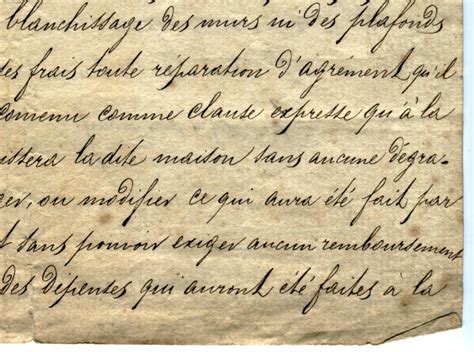 blanchissage des murs ni des plafonds
des frais toute réparation d'agrément qu'il
convenu comme clause expresse qu'à la
issera la dite maison sans aucune dégra-
cer, ou modifier ce qui aura été fait par
t sans pouvoir exiger aucun remboursement
des dépenses qui auront été faites à la